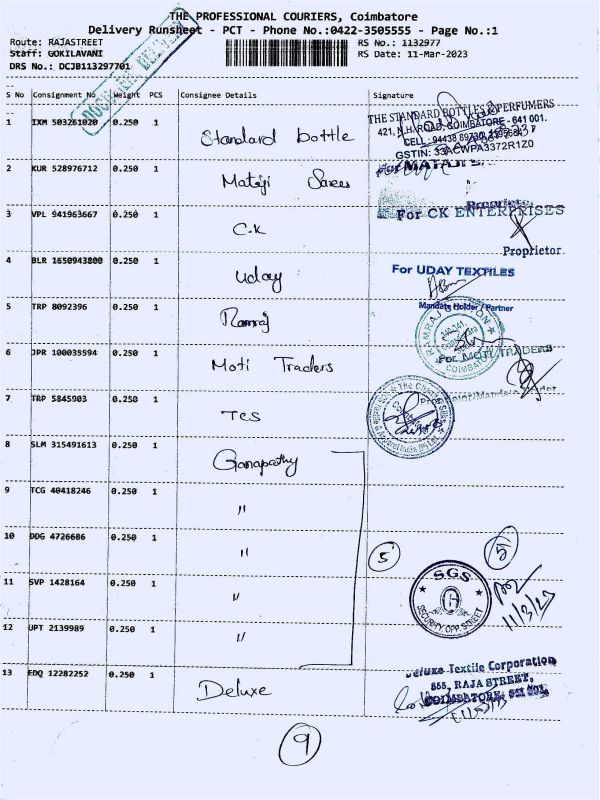 THE PROFESSIONAL COURIERS, Coimbatore
Delivery Runsheet - PCT - Phone No.:0422-3505555 - Page No.:1
Route: RAJASTREET
RS No.: 1132977
Staff: GOKILAVANI
RS Date: 11-Mar-2023
DRS No.: DCJB113297701
S No Consignment No Weight PCS Consignee Details Signature
1 IXM 503261020 0.250 1 Standard bottle
THE STANDARD BOTTLES & PERFUMERS
421, N.H. ROAD, COIMBATORE - 641 001.
GSTIN: 33ACWPA3372R1Z0
2 KUR 528976712 0.250 1 Mataji Sarees
MATAJI
Proprietor
3 VPL 941963667 0.250 1 C.K
For CK ENTERPRISES
Proprietor
4 BLR 1650943800 0.250 1 Uday
For UDAY TEXTILES
Mandate Holder / Partner
5 TRP 8092396 0.250 1 Ramraj
RAMRAJ COTTON
COIMBATORE
6 JPR 100035594 0.250 1 Moti Traders
For MOTI TRADERS
7 TRP 5845903 0.250 1 TCS
8 SLM 315491613 0.250 1 Ganapathy
9 TCG 40418246 0.250 1 "
10 DDG 4726686 0.250 1 "
5 5
11 SVP 1428164 0.250 1 "
SGS
SECURITY OPP STREET
11/3/23
12 UPT 2139989 0.250 1 "
13 EDQ 12282252 0.250 1 Deluxe
Deluxe Textile Corporation
855, RAJA STREET,
COIMBATORE- 641 001.
9